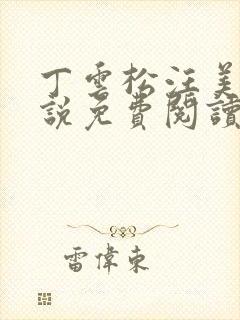 丁雲松汪美
說免費閱讀
雷偉東